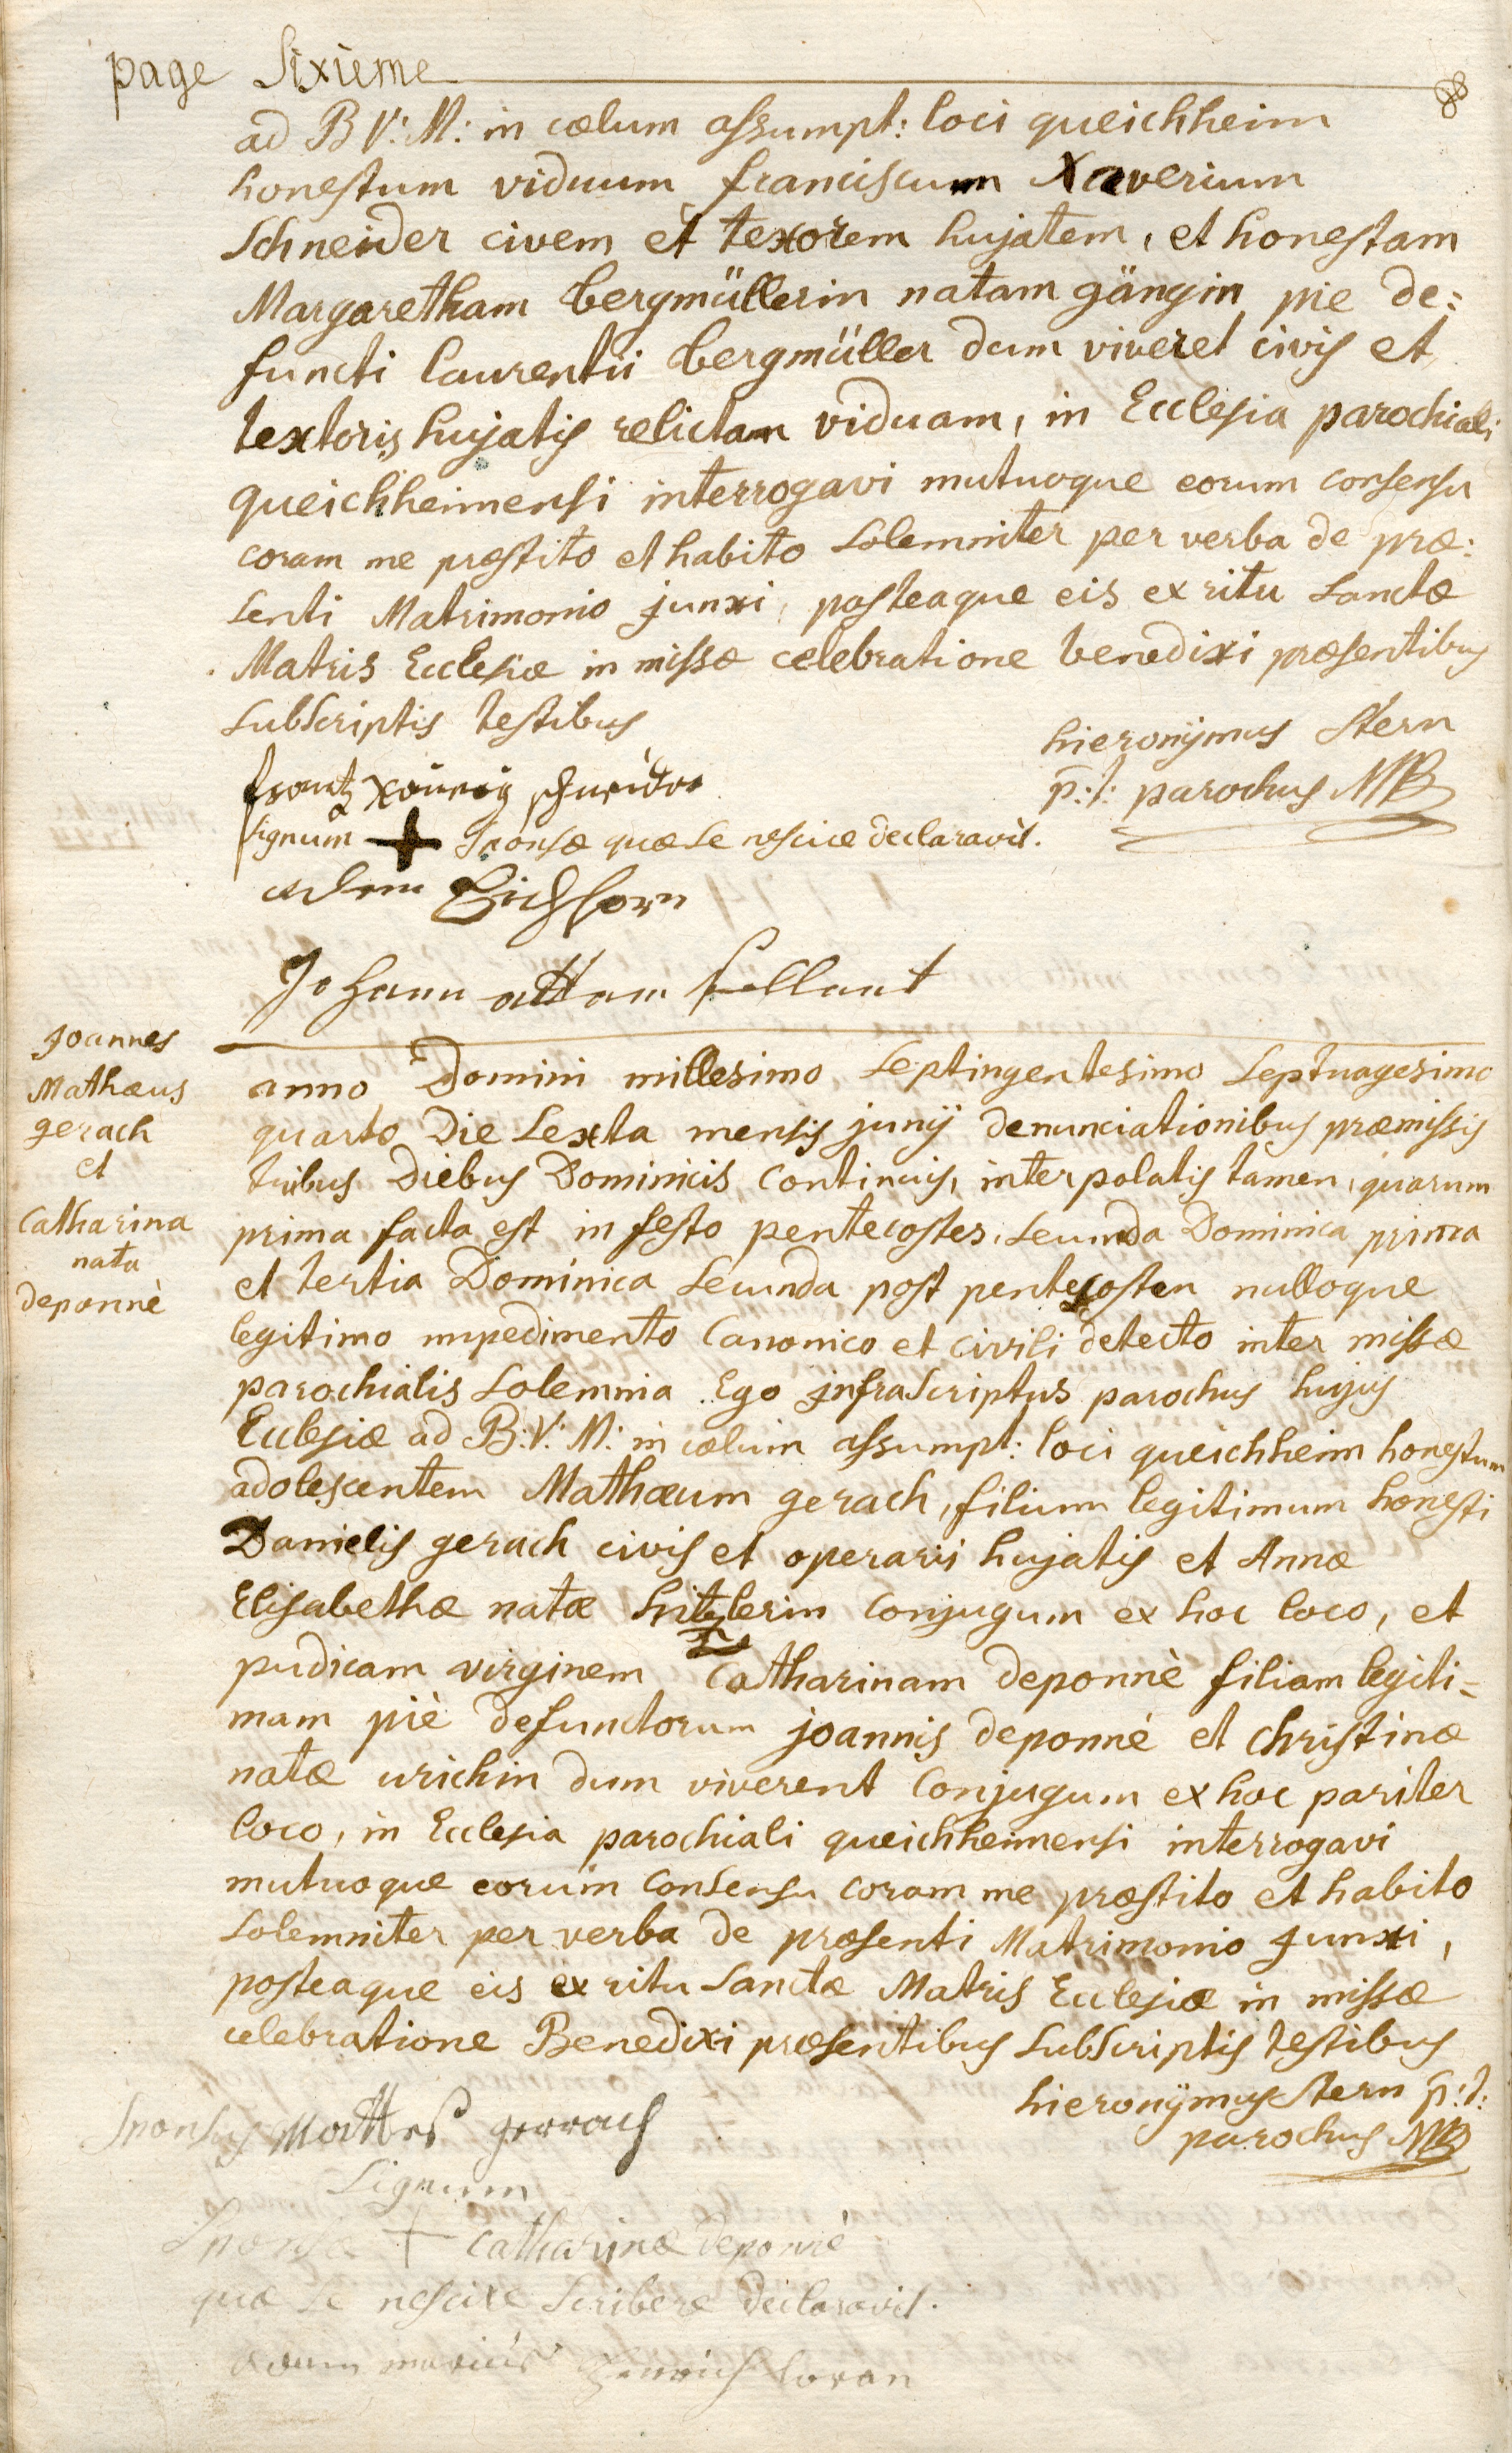 page Sixieme
ad B V: M: in cœlum assumpt: loci queichheim
honestum viduum franciscum Xaverium
Schneider civem et texorem hujatem, et honestam
Margaretham bergmüllerin natam gängin pie de:
functi laurentii bergmüller dum viveret civis et
textoris hujatis relictam viduam, in Ecclesia parochiali
queichheimensi interrogavi mutuoque eorum consensu
coram me præstito et habito solemniter per verba de præ:
senti Matrimonio junxi, posteaque eis ex ritu sanctæ
Matris Ecclesiæ in missæ celebratione benedixi præsentibus
subscriptis testibus
hieronÿmus Stern
p:t: parochus
frantz Xaverig schneider
signum + Sponsæ quæ se nescire declaravit.
adam Eichhorn
Johann attam
Joannes
Mathæus
gerach
et
Catharina
nata
deponnè
anno Domini millesimo septingentesimo septuagesimo
quarto die sexta mensis junÿ denunciationibus præmissis
tribus diebus Dominicis continuis, interpolatis tamen, quarum
prima facta est in festo pentecostes, secunda Dominica prima
et tertia Dominica secunda post pentecosten nulloque
legitimo impedimento Canonico et civili detecto inter missæ
parochialis solemnia Ego jnfrascriptus parochus hujus
Ecclesiæ ad B: V: M: in cœlum assumpt: loci queichheim honestum
adolescentem Mathæum gerach, filium legitimum honesti
Danielis gerach civis et operarii hujatis et Annæ
Elisabethæ natæ hitzlerin Conjugum ex hoc loco, et
pudicam virginem Catharinam deponnè filiam legiti=
mam piè defunctorum joannis deponnè et christinæ
natæ urichin dum viverent Conjugum ex hoc pariter
loco, in Ecclesia parochiali queichheimensi interrogavi
mutuoque eorum Consensu coram me præstito et habito
solemniter per verba de præsenti Matrimonio junxi,
posteaque eis ex ritu sanctæ Matris Ecclesiæ in missæ
celebratione Benedixi præsentibus subscriptis testibus
hieronÿmus Stern p:t:
parochus
Sponsus Mattes gerrach
Signum
Sponsæ + Catharinæ deponnè
quæ se nescire scribere declaravit.
adam henrich